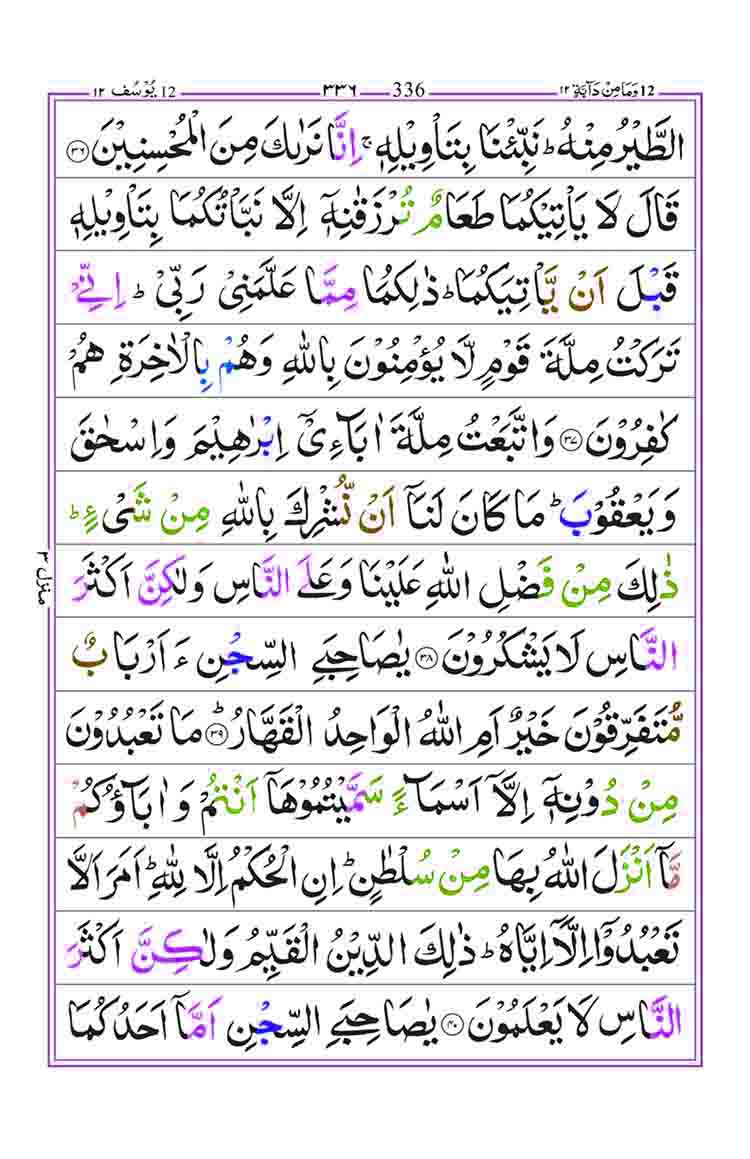 12 وَمَا مِنْ دَآبَّةٍ ١٢ 336 ٣٣٦ 12 يُوْسُف ١٢
الطَّيْرُ مِنْهُ ؕ نَبِّئْنَا بِتَاْوِيْلِهٖ ۚ اِنَّا نَرٰىكَ مِنَ الْمُحْسِنِيْنَ ٣٦
قَالَ لَا يَاْتِيْكُمَا طَعَامٌ تُرْزَقٰنِهٖۤ اِلَّا نَبَّاْتُكُمَا بِتَاْوِيْلِهٖ
قَبْلَ اَنْ يَّاْتِيَكُمَا ؕ ذٰلِكُمَا مِمَّا عَلَّمَنِيْ رَبِّيْ ؕ اِنِّيْ
تَرَكْتُ مِلَّةَ قَوْمٍ لَّا يُؤْمِنُوْنَ بِاللّٰهِ وَهُمْ بِالْاٰخِرَةِ هُمْ
كٰفِرُوْنَ ٣٧ وَاتَّبَعْتُ مِلَّةَ اٰبَآءِيْۤ اِبْرٰهِيْمَ وَاِسْحٰقَ
وَيَعْقُوْبَ ؕ مَا كَانَ لَنَاۤ اَنْ نُّشْرِكَ بِاللّٰهِ مِنْ شَيْءٍ ؕ
ذٰلِكَ مِنْ فَضْلِ اللّٰهِ عَلَيْنَا وَعَلَى النَّاسِ وَلٰكِنَّ اَكْثَرَ
النَّاسِ لَا يَشْكُرُوْنَ ٣٨ يٰصَاحِبَيِ السِّجْنِ ءَاَرْبَابٌ
مُّتَفَرِّقُوْنَ خَيْرٌ اَمِ اللّٰهُ الْوَاحِدُ الْقَهَّارُ ؕ ٣٩ مَا تَعْبُدُوْنَ
مِنْ دُوْنِهٖۤ اِلَّاۤ اَسْمَآءً سَمَّيْتُمُوْهَاۤ اَنْتُمْ وَاٰبَآؤُكُمْ
مَّاۤ اَنْزَلَ اللّٰهُ بِهَا مِنْ سُلْطٰنٍ ؕ اِنِ الْحُكْمُ اِلَّا لِلّٰهِ ؕ اَمَرَ اَلَّا
تَعْبُدُوْۤا اِلَّاۤ اِيَّاهُ ؕ ذٰلِكَ الدِّيْنُ الْقَيِّمُ وَلٰكِنَّ اَكْثَرَ
النَّاسِ لَا يَعْلَمُوْنَ ٤٠ يٰصَاحِبَيِ السِّجْنِ اَمَّاۤ اَحَدُكُمَا
منزل ٣